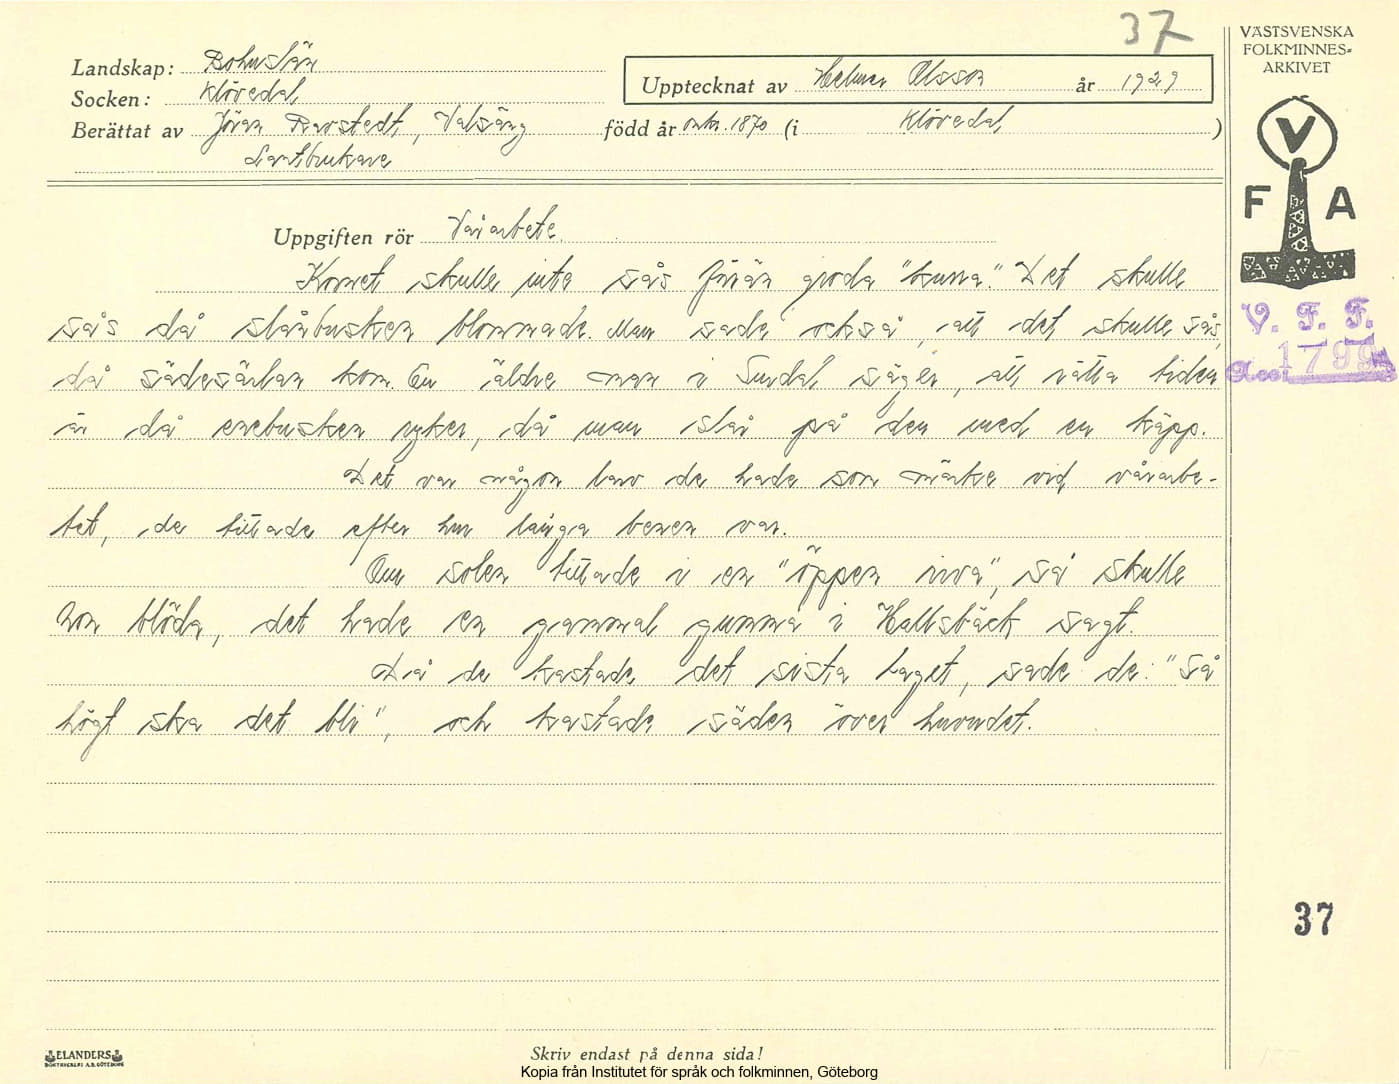 37
VÄSTSVENSKA
FOLKMINNES-
ARKIVET
Landskap: Bohuslän
Socken: Klövedal
Upptecknat av Helmer Olsson år 1929
Berättat av Göran Ravstedt, Valsäng född år omkr. 1870 (i Klövedal )
Lantbrukare
V
F A
Uppgiften rör Vårarbete.
Kornet skulle inte sås förrän groda "kurra". Det skulle
sås då slånbusken blommade. Man sade också, att det skulle sås,
då sädesärlan kom. En äldre man i Sundal säger, att rätta tiden
är då enebusken ryker, då man slår på den med en käpp.
Det var någon larv de hade som märke vid vårarbe-
tet, de tittade efter hur långa benen var.
Om solen tittade i en "öppen riva", så skulle
hon blöda, det hade en gammal gumma i Hallsbäck sagt.
Då de kastade det sista taget, sade de: "Så
högt ska det bli", och kastade säden över huvudet.
V. F. F.
Acc. 1799
37
ELANDERS
BOKTRYCKERI A.B. GÖTEBORG
Skriv endast på denna sida!
Kopia från Institutet för språk och folkminnen, Göteborg